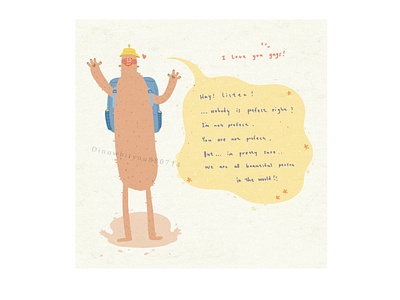 I Love you guys!
Hay! Listen!
...nobody is perfect right!
I'm not perfect.
You are not perfect.
But... im pretty sure..
We are all beautiful person
in the world!!